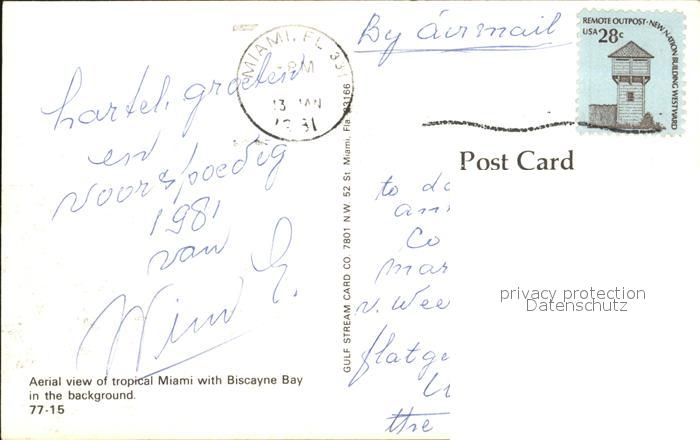 By áirmail
REMOTE OUTPOST·NEW NATION BUILDING WESTWARD
USA 28c
MIAMI, FL 331
PM
13 JAN
1981
hartel. groeten
en
voorspoedig
1981
van
Wim G.
Post Card
to
Co
mar
v. Wee
flatge
the
privacy protection
Datenschutz
GULF STREAM CARD CO. 7801 N.W. 52 St. Miami, Fla. 33166
Aerial view of tropical Miami with Biscayne Bay
in the background.
77-15